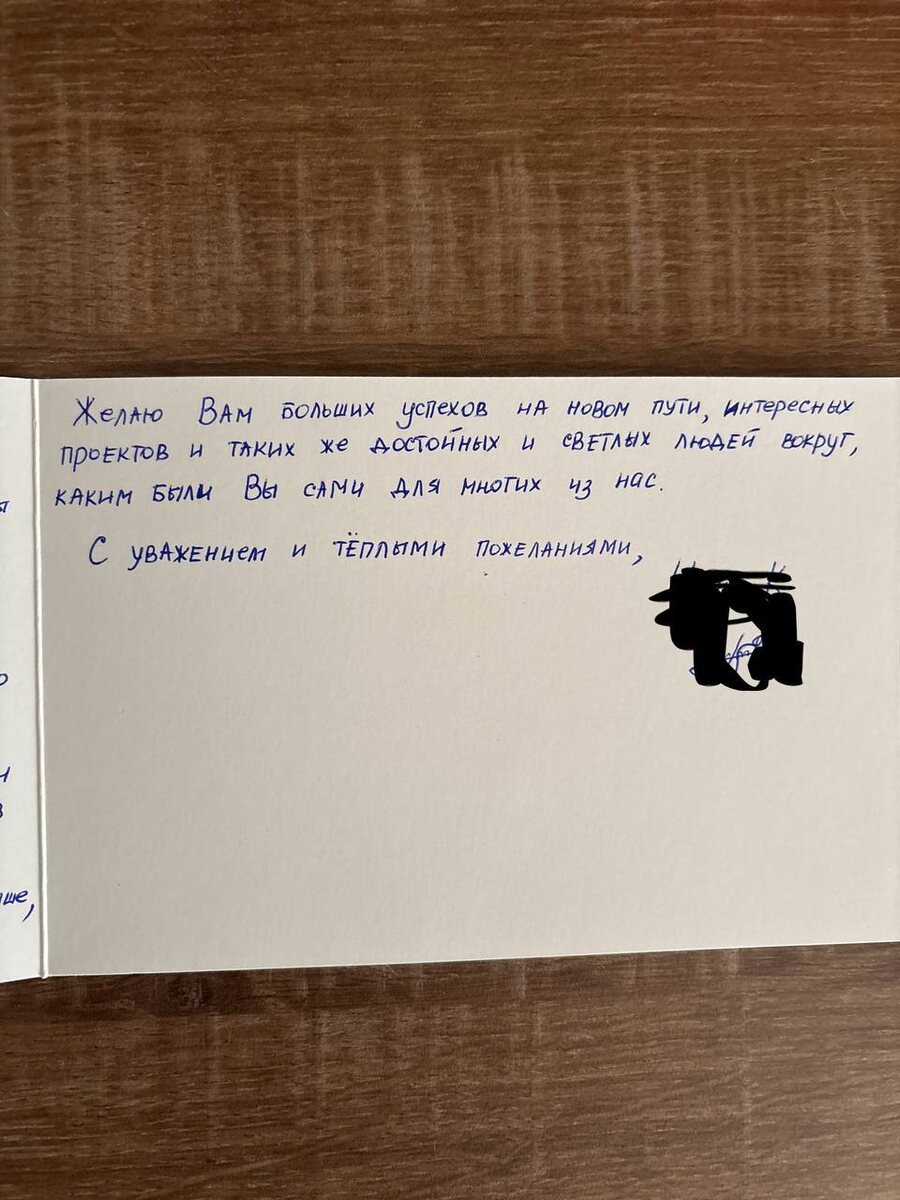 Желаю Вам больших успехов на новом пути, интересных
проектов и таких же достойных и светлых людей вокруг,
каким были Вы сами для многих из нас.
С уважением и тёплыми пожеланиями,